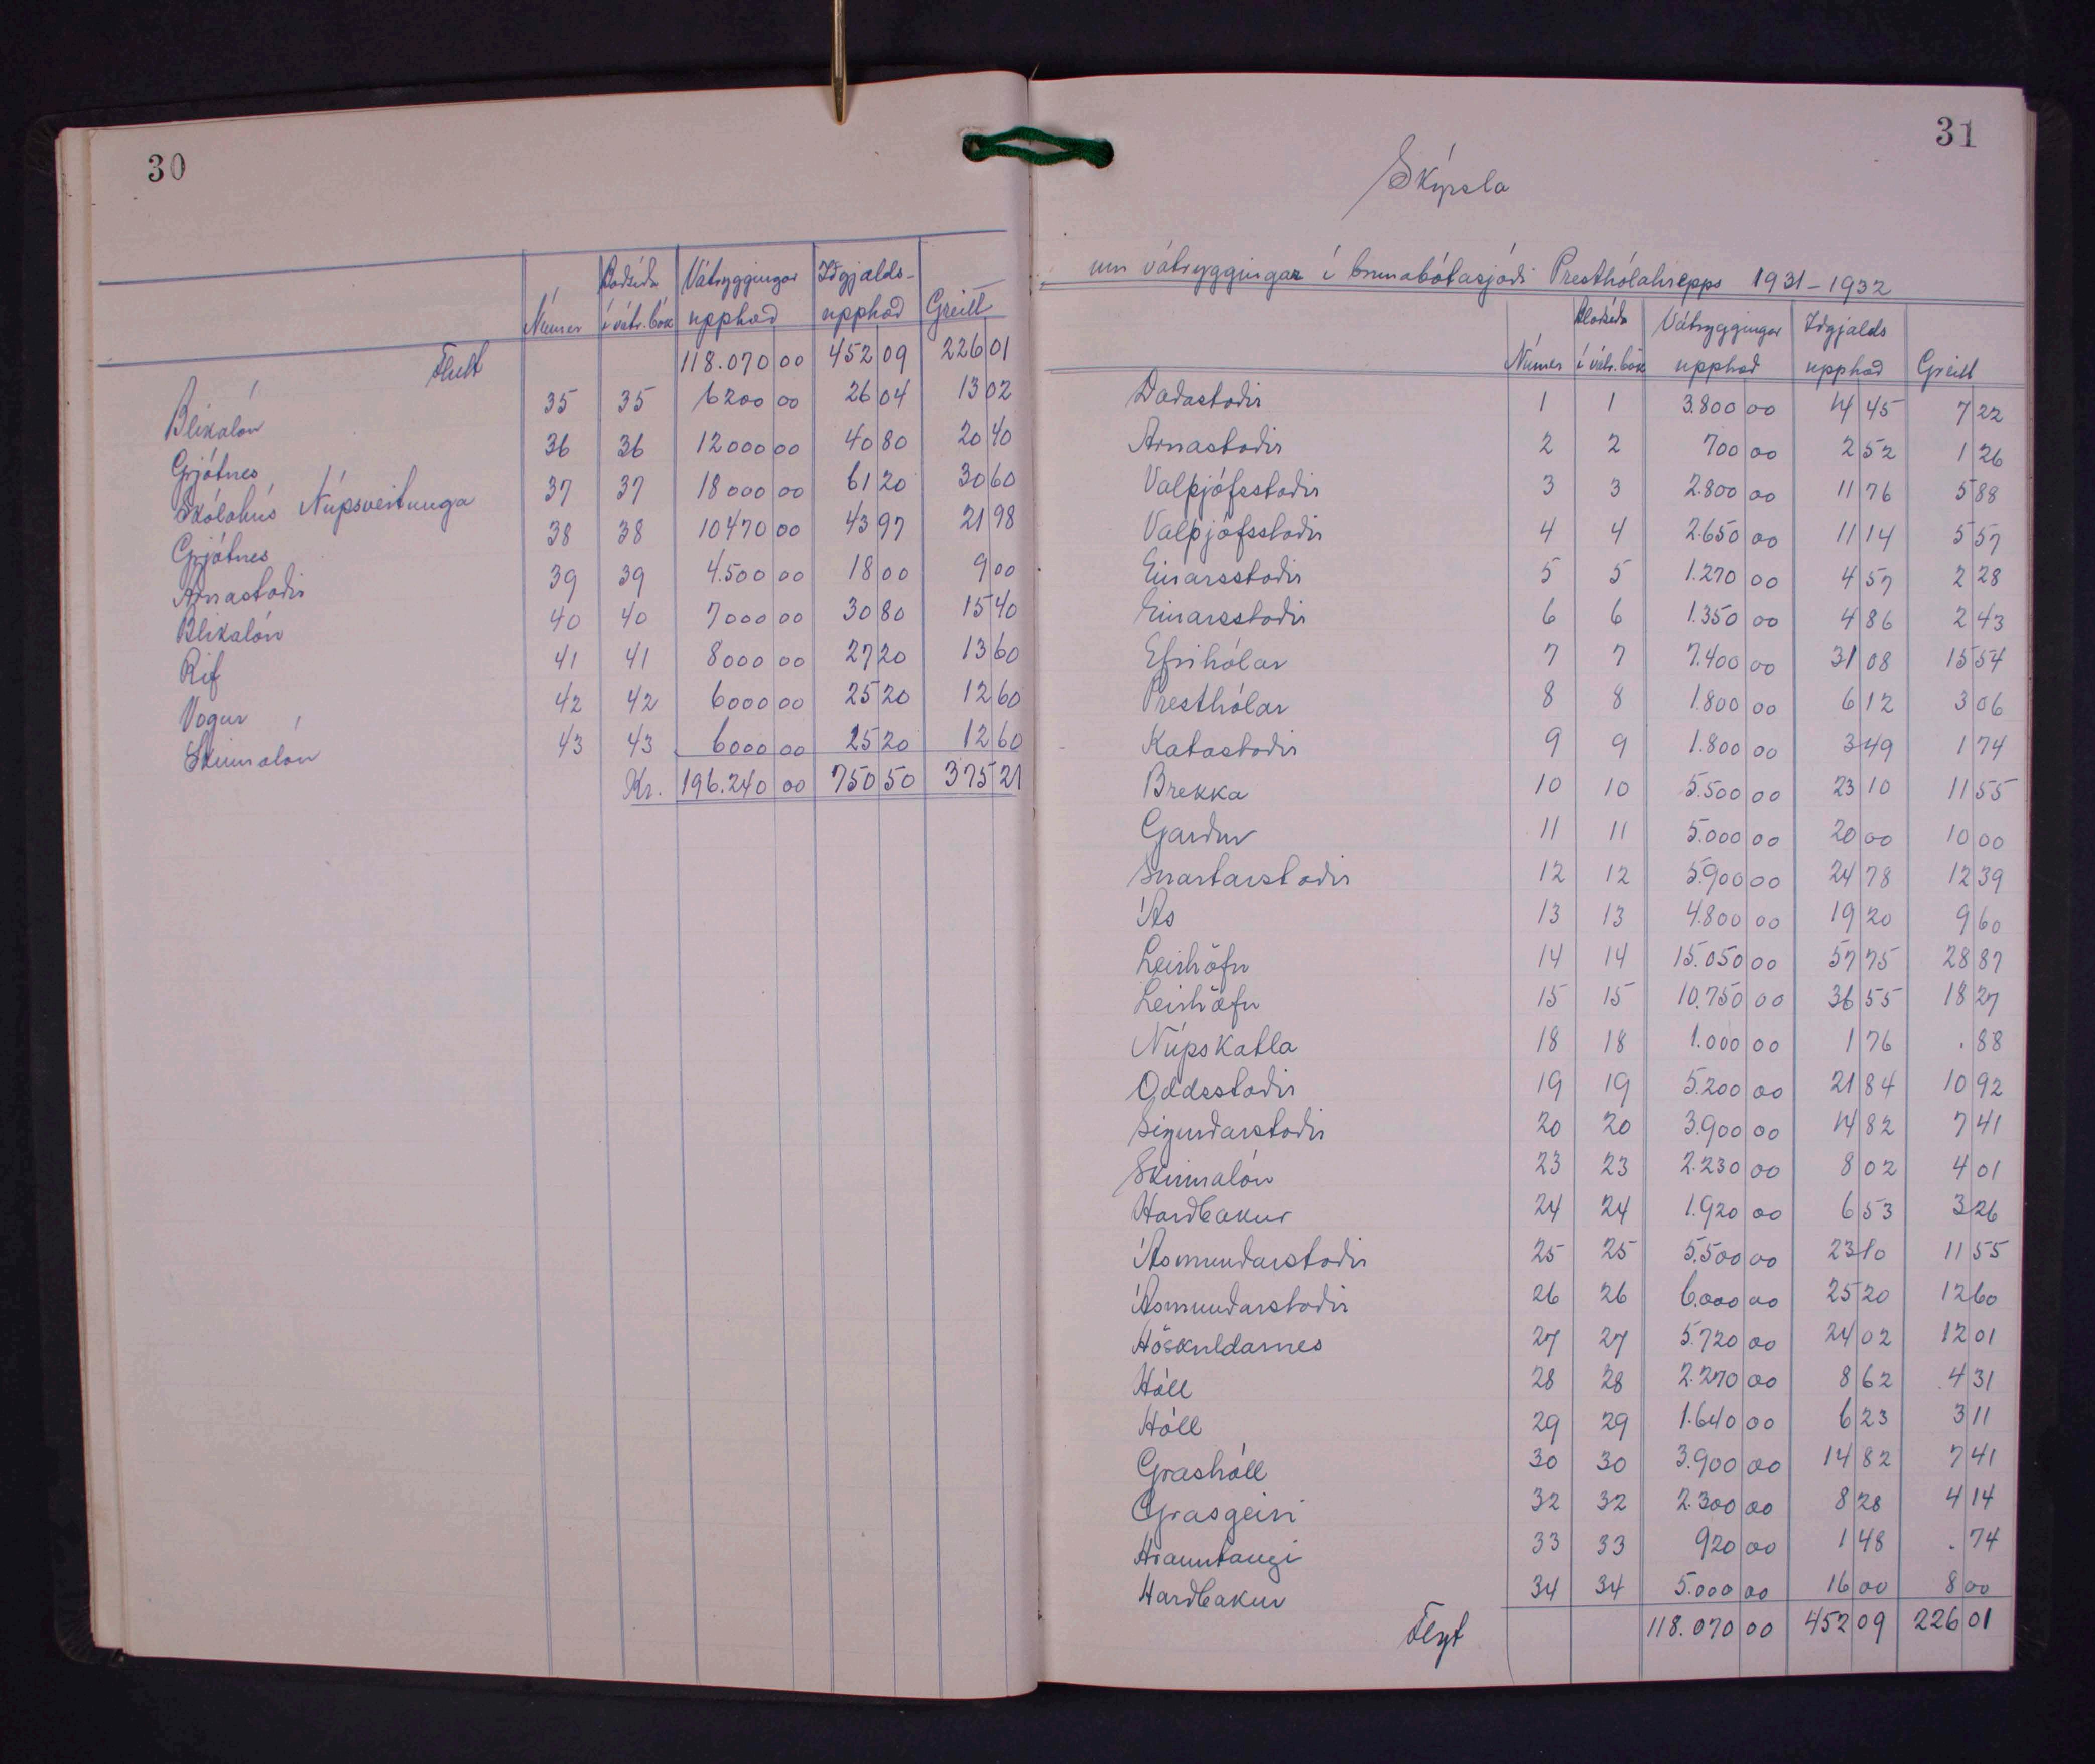 30
Númer Blaðsíða í vátr.bók Vátryggingar upphæð Iðgjalds-upphæð Greitt
Flutt 118.070 00 452 09 226 01
Blikalón 35 35 6200 00 26 04 13 02
Grjótnes 36 36 12000 00 40 80 20 40
Skólahús Núpsveitunga 37 37 18000 00 61 20 30 60
Grjótnes 38 38 10470 00 43 97 21 98
Arnastaðir 39 39 4.500 00 18 00 9 00
Blikalón 40 40 7000 00 30 80 15 40
Rif 41 41 8000 00 27 20 13 60
Vogur 42 42 6000 00 25 20 12 60
Skinnalón 43 43 6000 00 25 20 12 60
Kr. 196.240 00 750 50 375 21
31
Skýrsla
um vátryggingar í brunabótasjóði Presthólahrepps 1931-1932
Númer Blaðsíða í vátr.bók Vátryggingar upphæð Iðgjalds upphæð Greitt
Daðastaðir 1 1 3.800 00 14 45 7 22
Arnastaðir 2 2 700 00 2 52 1 26
Valþjófsstaðir 3 3 2.800 00 11 76 5 88
Valþjófsstaðir 4 4 2.650 00 11 14 5 57
Einarsstaðir 5 5 1.270 00 4 57 2 28
Einarsstaðir 6 6 1.350 00 4 86 2 43
Efrihólar 7 7 7.400 00 31 08 15 54
Presthólar 8 8 1.800 00 6 12 3 06
Katastaðir 9 9 1.800 00 3 49 1 74
Brekka 10 10 5.500 00 23 10 11 55
Garður 11 11 5.000 00 20 00 10 00
Snartarstaðir 12 12 5.900 00 24 78 12 39
Ás 13 13 4.800 00 19 20 9 60
Leirhöfn 14 14 15.050 00 57 75 28 87
Leirhöfn 15 15 10.750 00 36 55 18 27
Núpskatla 18 18 1.000 00 1 76 . 88
Oddsstaðir 19 19 5.200 00 21 84 10 92
Sigurðarstaðir 20 20 3.900 00 14 82 7 41
Skinnalón 23 23 2.230 00 8 02 4 01
Harðbakur 24 24 1.920 00 6 53 3 26
Ásmundarstaðir 25 25 5.500 00 23 10 11 55
Ásmundarstaðir 26 26 6.000 00 25 20 12 60
Höskuldarnes 27 27 5.720 00 24 02 12 01
Hóll 28 28 2.270 00 8 62 4 31
Hóll 29 29 1.640 00 6 23 3 11
Grashóll 30 30 3.900 00 14 82 7 41
Grasgeiri 32 32 2.300 00 8 28 4 14
Hrauntangi 33 33 920 00 1 48 . 74
Harðbakur 34 34 5.000 00 16 00 8 00
Flyt 118.070 00 452 09 226 01